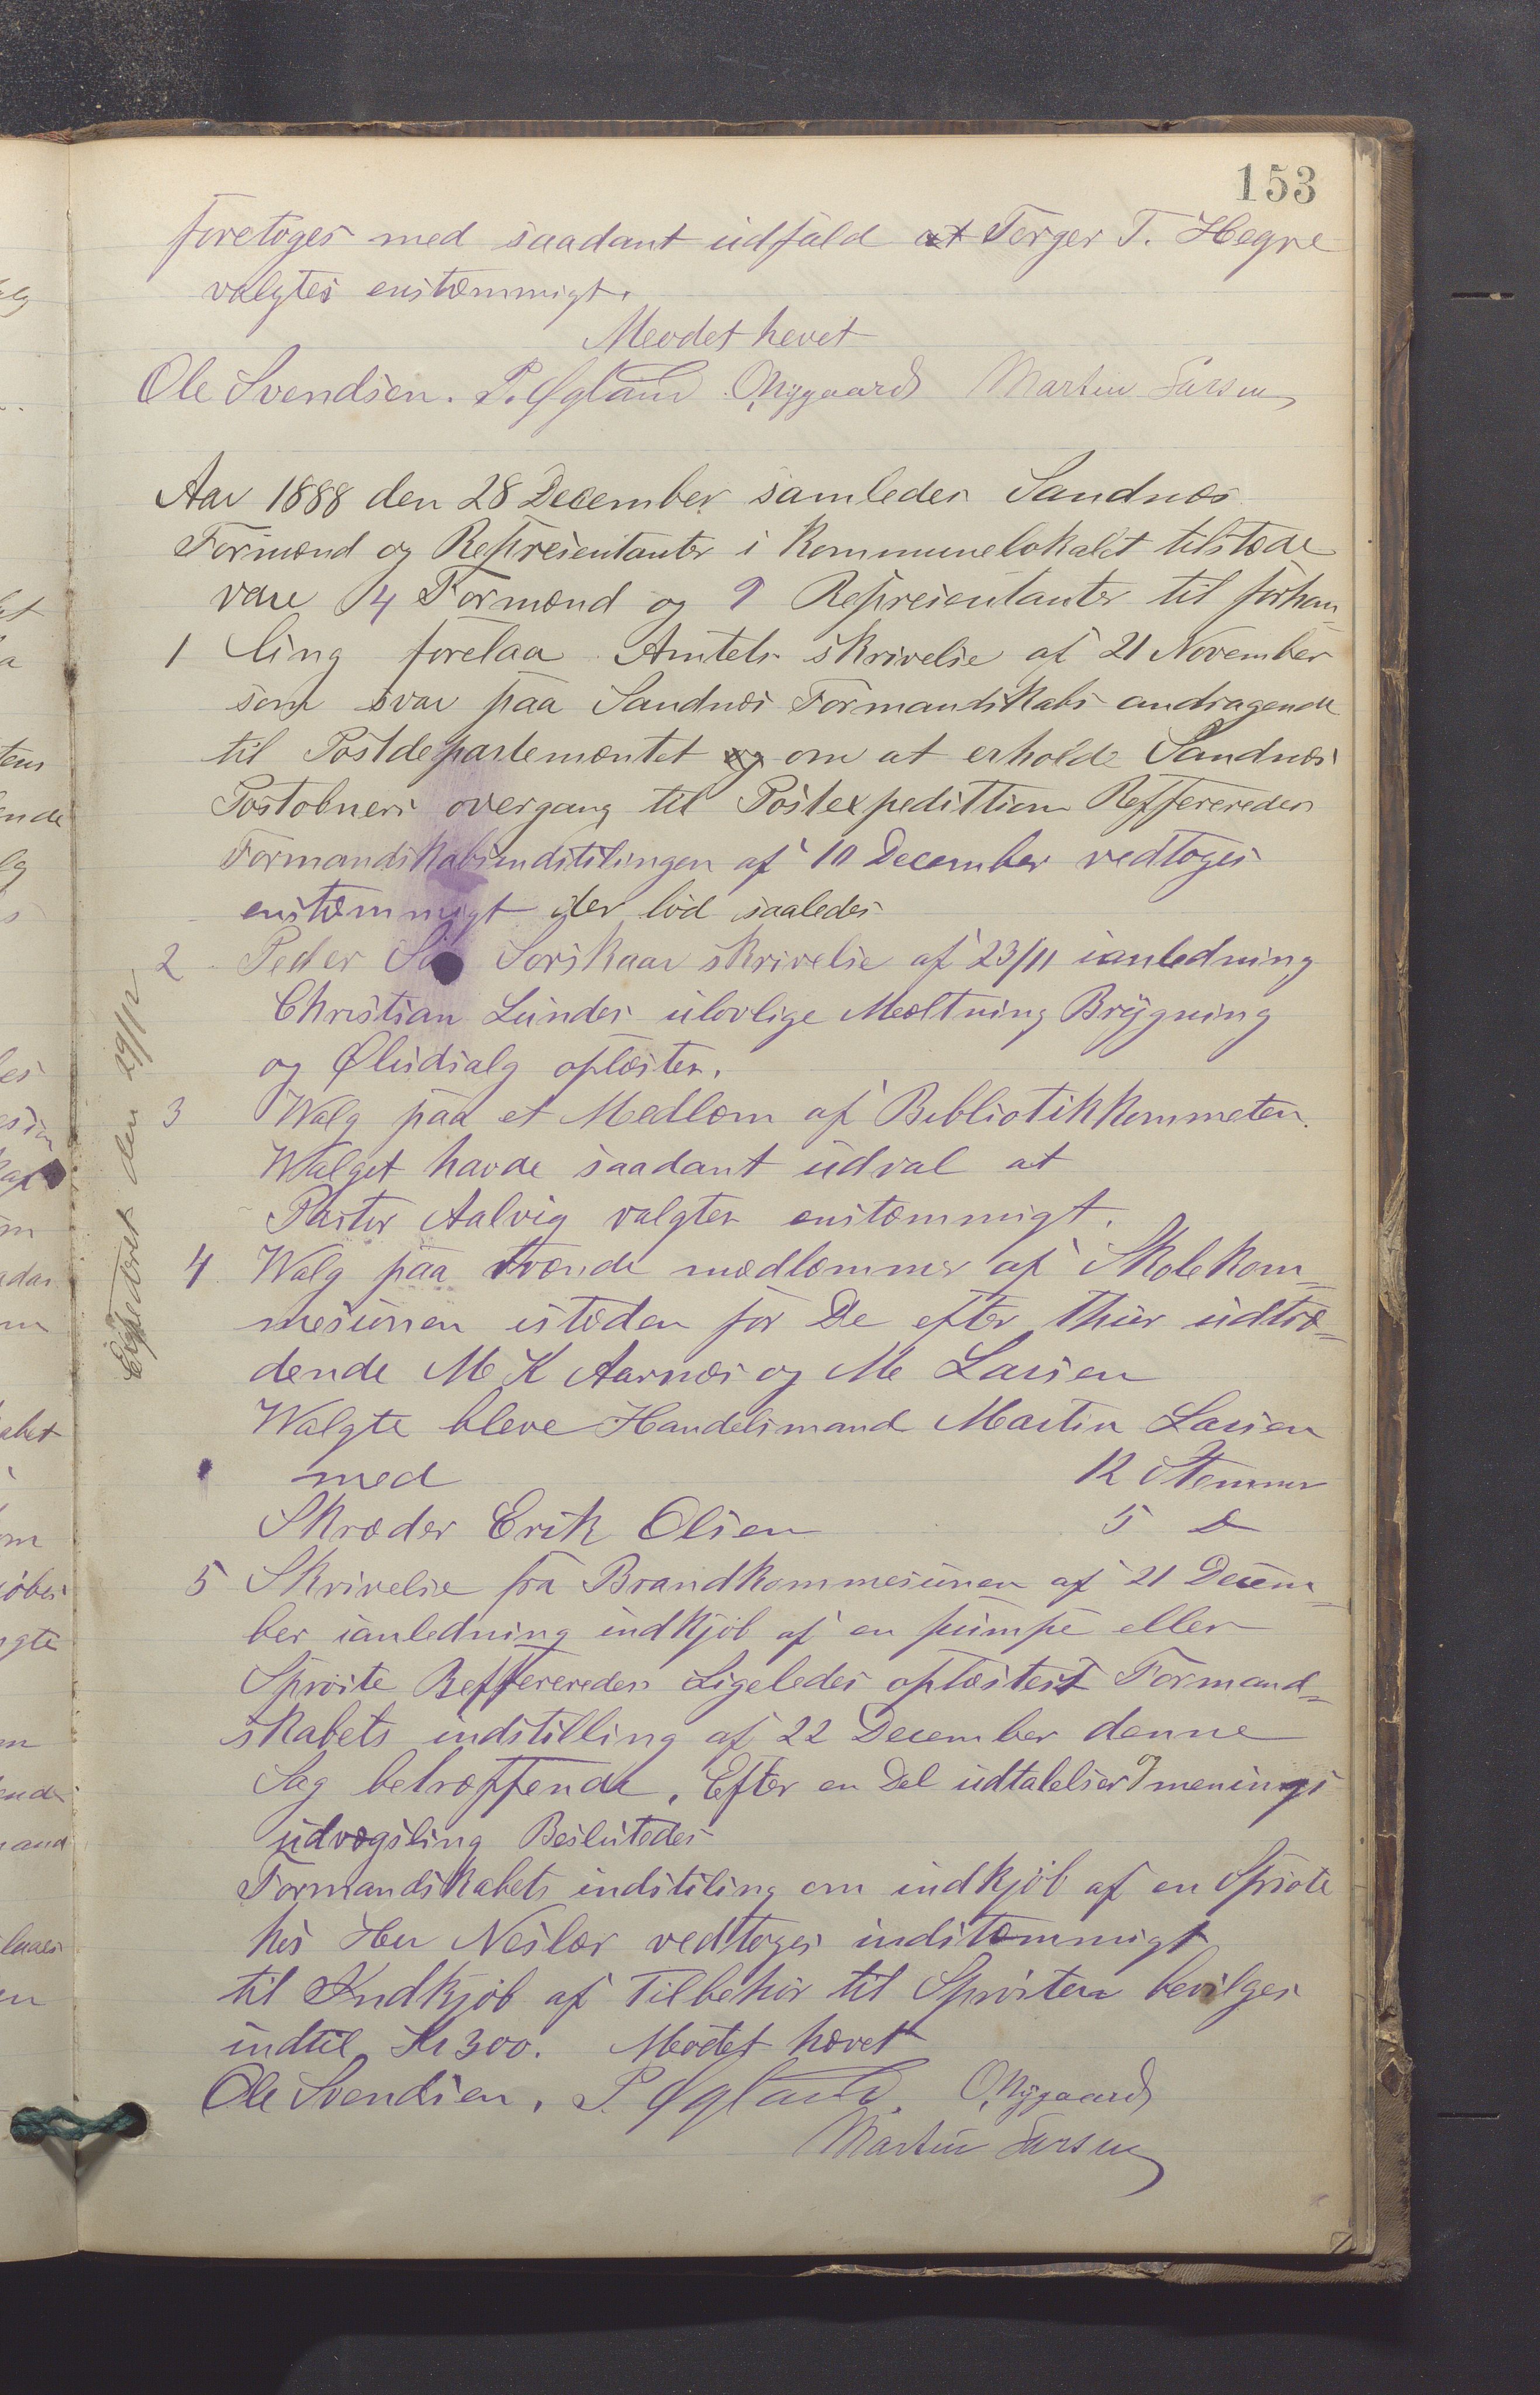 153
foretoges med saadant udfald at Torger T. Hegre
valgtes enstæmmigt.
Meodet hevet
Ole Svendsen. P. Øgland O Nygaard Martin Larsen
Aar 1888 den 28 December samledes Sandnæs
Formænd og Represientanter i Kommunelokalet tilstæde
vare 4 Formænd og 9 Represientanter til forhan-
1 ling forelaa Amtets skrivelse af 21 November
som svar paa Sandnæs Formandskabs andragende
til Postdepartemæntet og om at erholde Sandnæs
Postobneri overgang til Postexpedittion Reffereredes
Formandskabsindstilingen af 10 December vedtoges
enstæmmigt der lød saaledes
2 Peder Sørskaar skrivelse af 23/11 ianledning
Christian Lundes ulovlige Mæltning Brygning
og Øludsalg oplæstes.
3 Walg paa et Medlem af Bibliotikkommeten.
Walget havde saadant udval at
Pastor Aalvig valgtes enstæmmigt.
Expederet den 29/12
4 Walg paa tvænde medlæmmer af Skolekom-
mesiunen isteden for De efter thur udtræ-
dende M K Aarnæs og M Larsen
Walgte bleve Handelsmand Martin Larsen
med 12 Stemmer
Skræder Erik Olsen 5 D
5 Skrivelse fra Brandkommesiunen af 21 Decem-
ber ianledning indkjøb af en pumpe eller
Sprøite Reffereredes Ligeledes oplæstest Formand-
skabets indstilling af 22 December denne
Sag betræffende. Efter en Del udtalelser og menings
udvægsling Beslutedes
Formandskabets indstiling om indkjøb af en Sprøte
hos Her Neslær vedtoges indstæmmigt
til Indkjøb af Tilbehør til Sprøiten bevilges
indtil Kr 300. Mødet hævet
Ole Svendsen. P. Øgland. O Nygaard
Martin Larsen